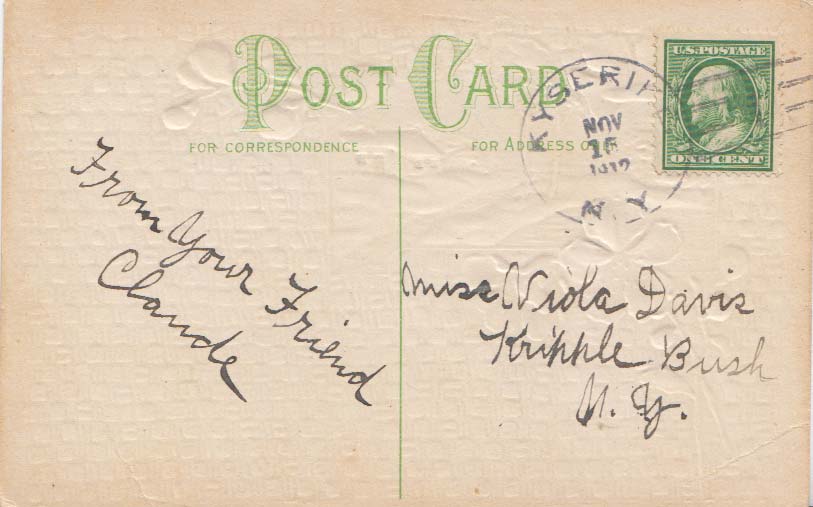 POST CARD
FOR CORRESPONDENCE
FOR ADDRESS ONLY
KYSERIKE
NOV
15
1912
N.Y.
U.S. POSTAGE
ONE CENT
From Your Friend
Claude
Miss Viola Davis
Kripple Bush
N. Y.